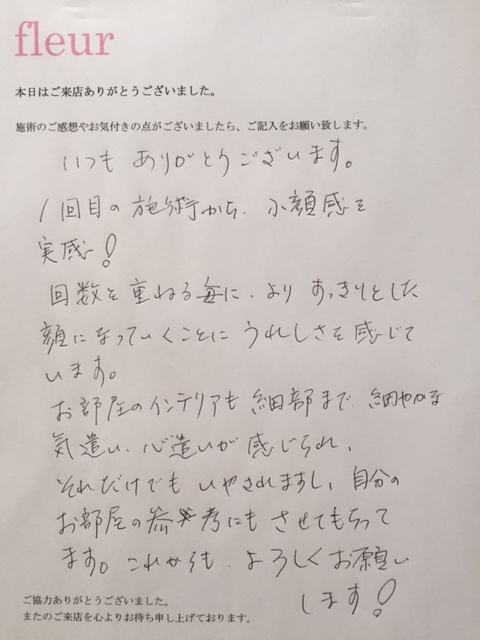 fleur
本日はご来店ありがとうございました。
施術のご感想やお気付きの点がございましたら、ご記入をお願い致します。
いつも ありがとうございます。
1回目の施術から、小顔感を
実感!
回数を重ねる毎に、より すっきりとした
顔になっていくことに うれしさを感じて
います。
お部屋のインテリアも 細部まで 細やかな
気遣い、心遣いが 感じられ、
それだけでも いやされますし、自分の
お部屋の参考にも させてもらって
ます。これからも、よろしくお願い
します!
ご協力ありがとうございました。
またのご来店を心よりお待ち申し上げております。